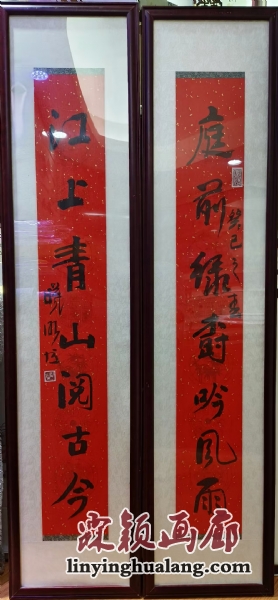 庭前绿树吟风雨
癸巳之夏
江上青山阅古今
霖颖画廊
www.linyinghualang.com